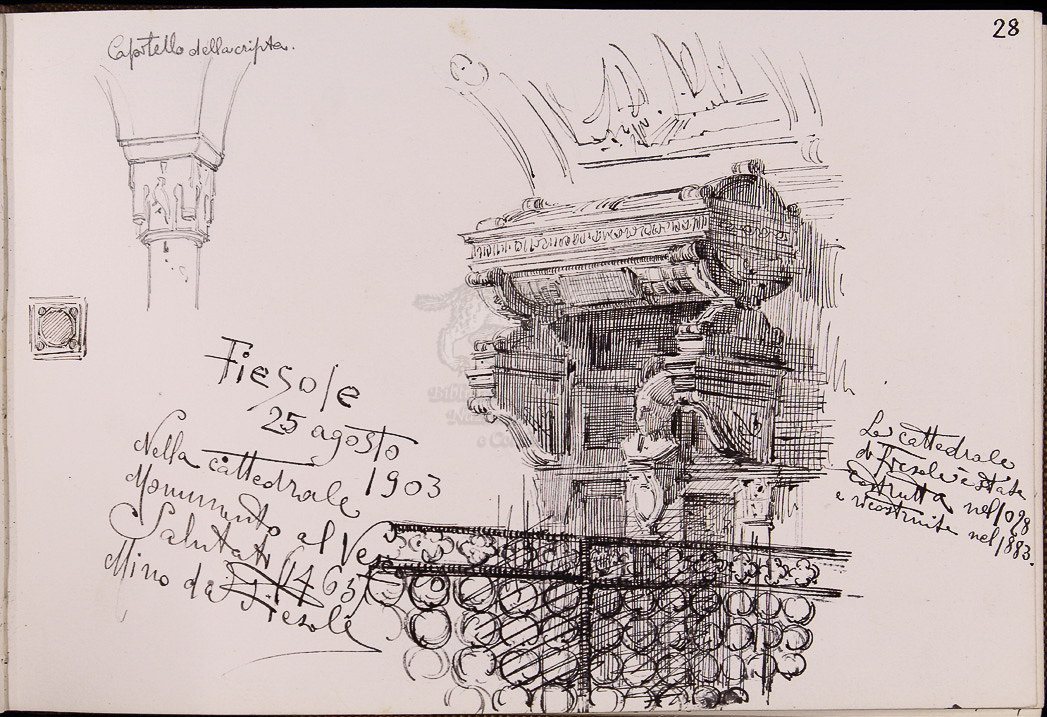 28
Capitello della cripta.
Fiesole
25 agosto
1903
Nella cattedrale
Monumento al Ves
Salutati (1463)
Mino da Fiesole
La cattedrale
di Fiesole è stata
costrutta nel 1028
e ricostruita nel 1883.